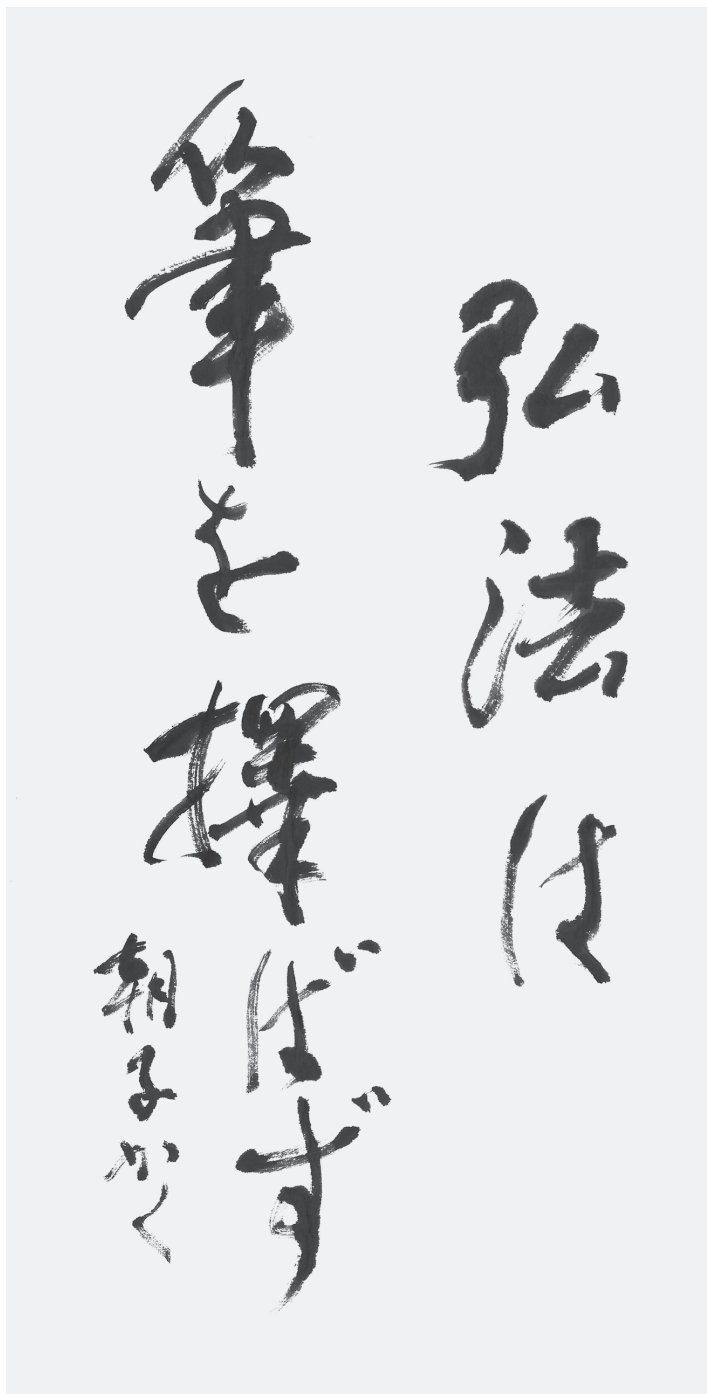 弘法は
筆を擇ばず
朝子かく